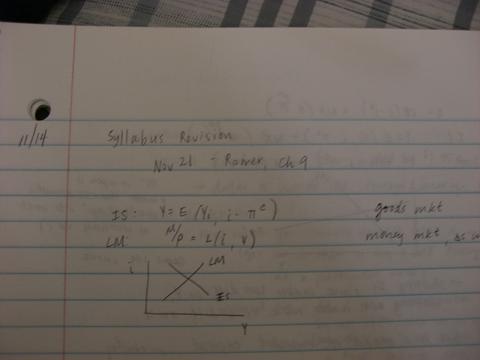 11/14
Syllabus Revision
Nov 21 - Romer, Ch 9
IS: Y = E (Y, i - π^e) goods mkt
LM: M/P = L(i, Y) money mkt,
i LM
IS
Y